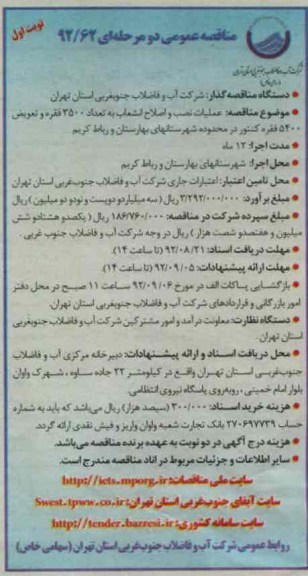 نوبت اول
مناقصه عمومی دو مرحله‌ای ۹۲/۶۲
شرکت آب و فاضلاب جنوبغربی استان تهران
(سهامی خاص)
● دستگاه مناقصه گذار: شرکت آب و فاضلاب جنوبغربی استان تهران
● موضوع مناقصه: عملیات نصب و اصلاح انشعاب به تعداد ۳۵۰۰ فقره و تعویض
۵۴۰ فقره کنتور در محدوده شهرستانهای بهارستان و رباط کریم
● مدت اجرا: ۱۲ ماه
● محل اجرا: شهرستانهای بهارستان و رباط کریم
● محل تامین اعتبار: اعتبارات جاری شرکت آب و فاضلاب جنوب‌غربی استان تهران
● مبلغ برآورد: ۳/۲۹۲/۰۰۰/۰۰۰ ریال (سه میلیارد و دویست و نود و دو میلیون) ریال
● مبلغ سپرده شرکت در مناقصه: ۱۸۶/۷۶۰/۰۰۰ ریال (یکصد و هشتاد و شش
میلیون و هفتصد و شصت هزار) ریال در وجه شرکت آب و فاضلاب جنوب غربی.
● مهلت دریافت اسناد: ۹۲/۰۸/۲۱ (تا ساعت ۱۴)
● مهلت ارائه پیشنهادات: ۹۲/۰۹/۰۵ (تا ساعت ۱۴)
● بازگشایی پاکات الف در مورخ ۹۲/۰۹/۰۶ ساعت ۱۱ صبح در محل دفتر
امور بازرگانی و قراردادهای شرکت آب و فاضلاب جنوبغربی استان تهران.
● دستگاه نظارت: معاونت درآمد و امور مشترکین شرکت آب و فاضلاب جنوبغربی
استان تهران.
● محل دریافت اسناد و ارائه پیشنهادات: دبیرخانه مرکزی آب و فاضلاب
جنوبغربی استان تهران واقع در کیلومتر ۲۲ جاده ساوه، شهرک واوان
بلوار امام خمینی، روبه‌روی پاسگاه نیروی انتظامی.
● هزینه خرید اسناد: ۳۰۰/۰۰۰ (سیصد هزار) ریال می‌باشد که باید به شماره
حساب ۲۷۰۶۹۷۷۳۹ بانک تجارت شعبه واوان واریز و فیش نقدی ارائه گردد.
● هزینه درج آگهی در دو نوبت به عهده برنده مناقصه می‌باشد.
● سایر اطلاعات و جزئیات مربوط در اسناد مناقصه مندرج است.
سایت ملی مناقصات: http://iets.mporg.ir
سایت آبفای جنوب‌غربی استان تهران: Swest.tpww.co.ir
سایت سامانه کشوری: http://tender.bazresi.ir
روابط عمومی شرکت آب و فاضلاب جنوب‌غربی استان تهران (سهامی خاص)